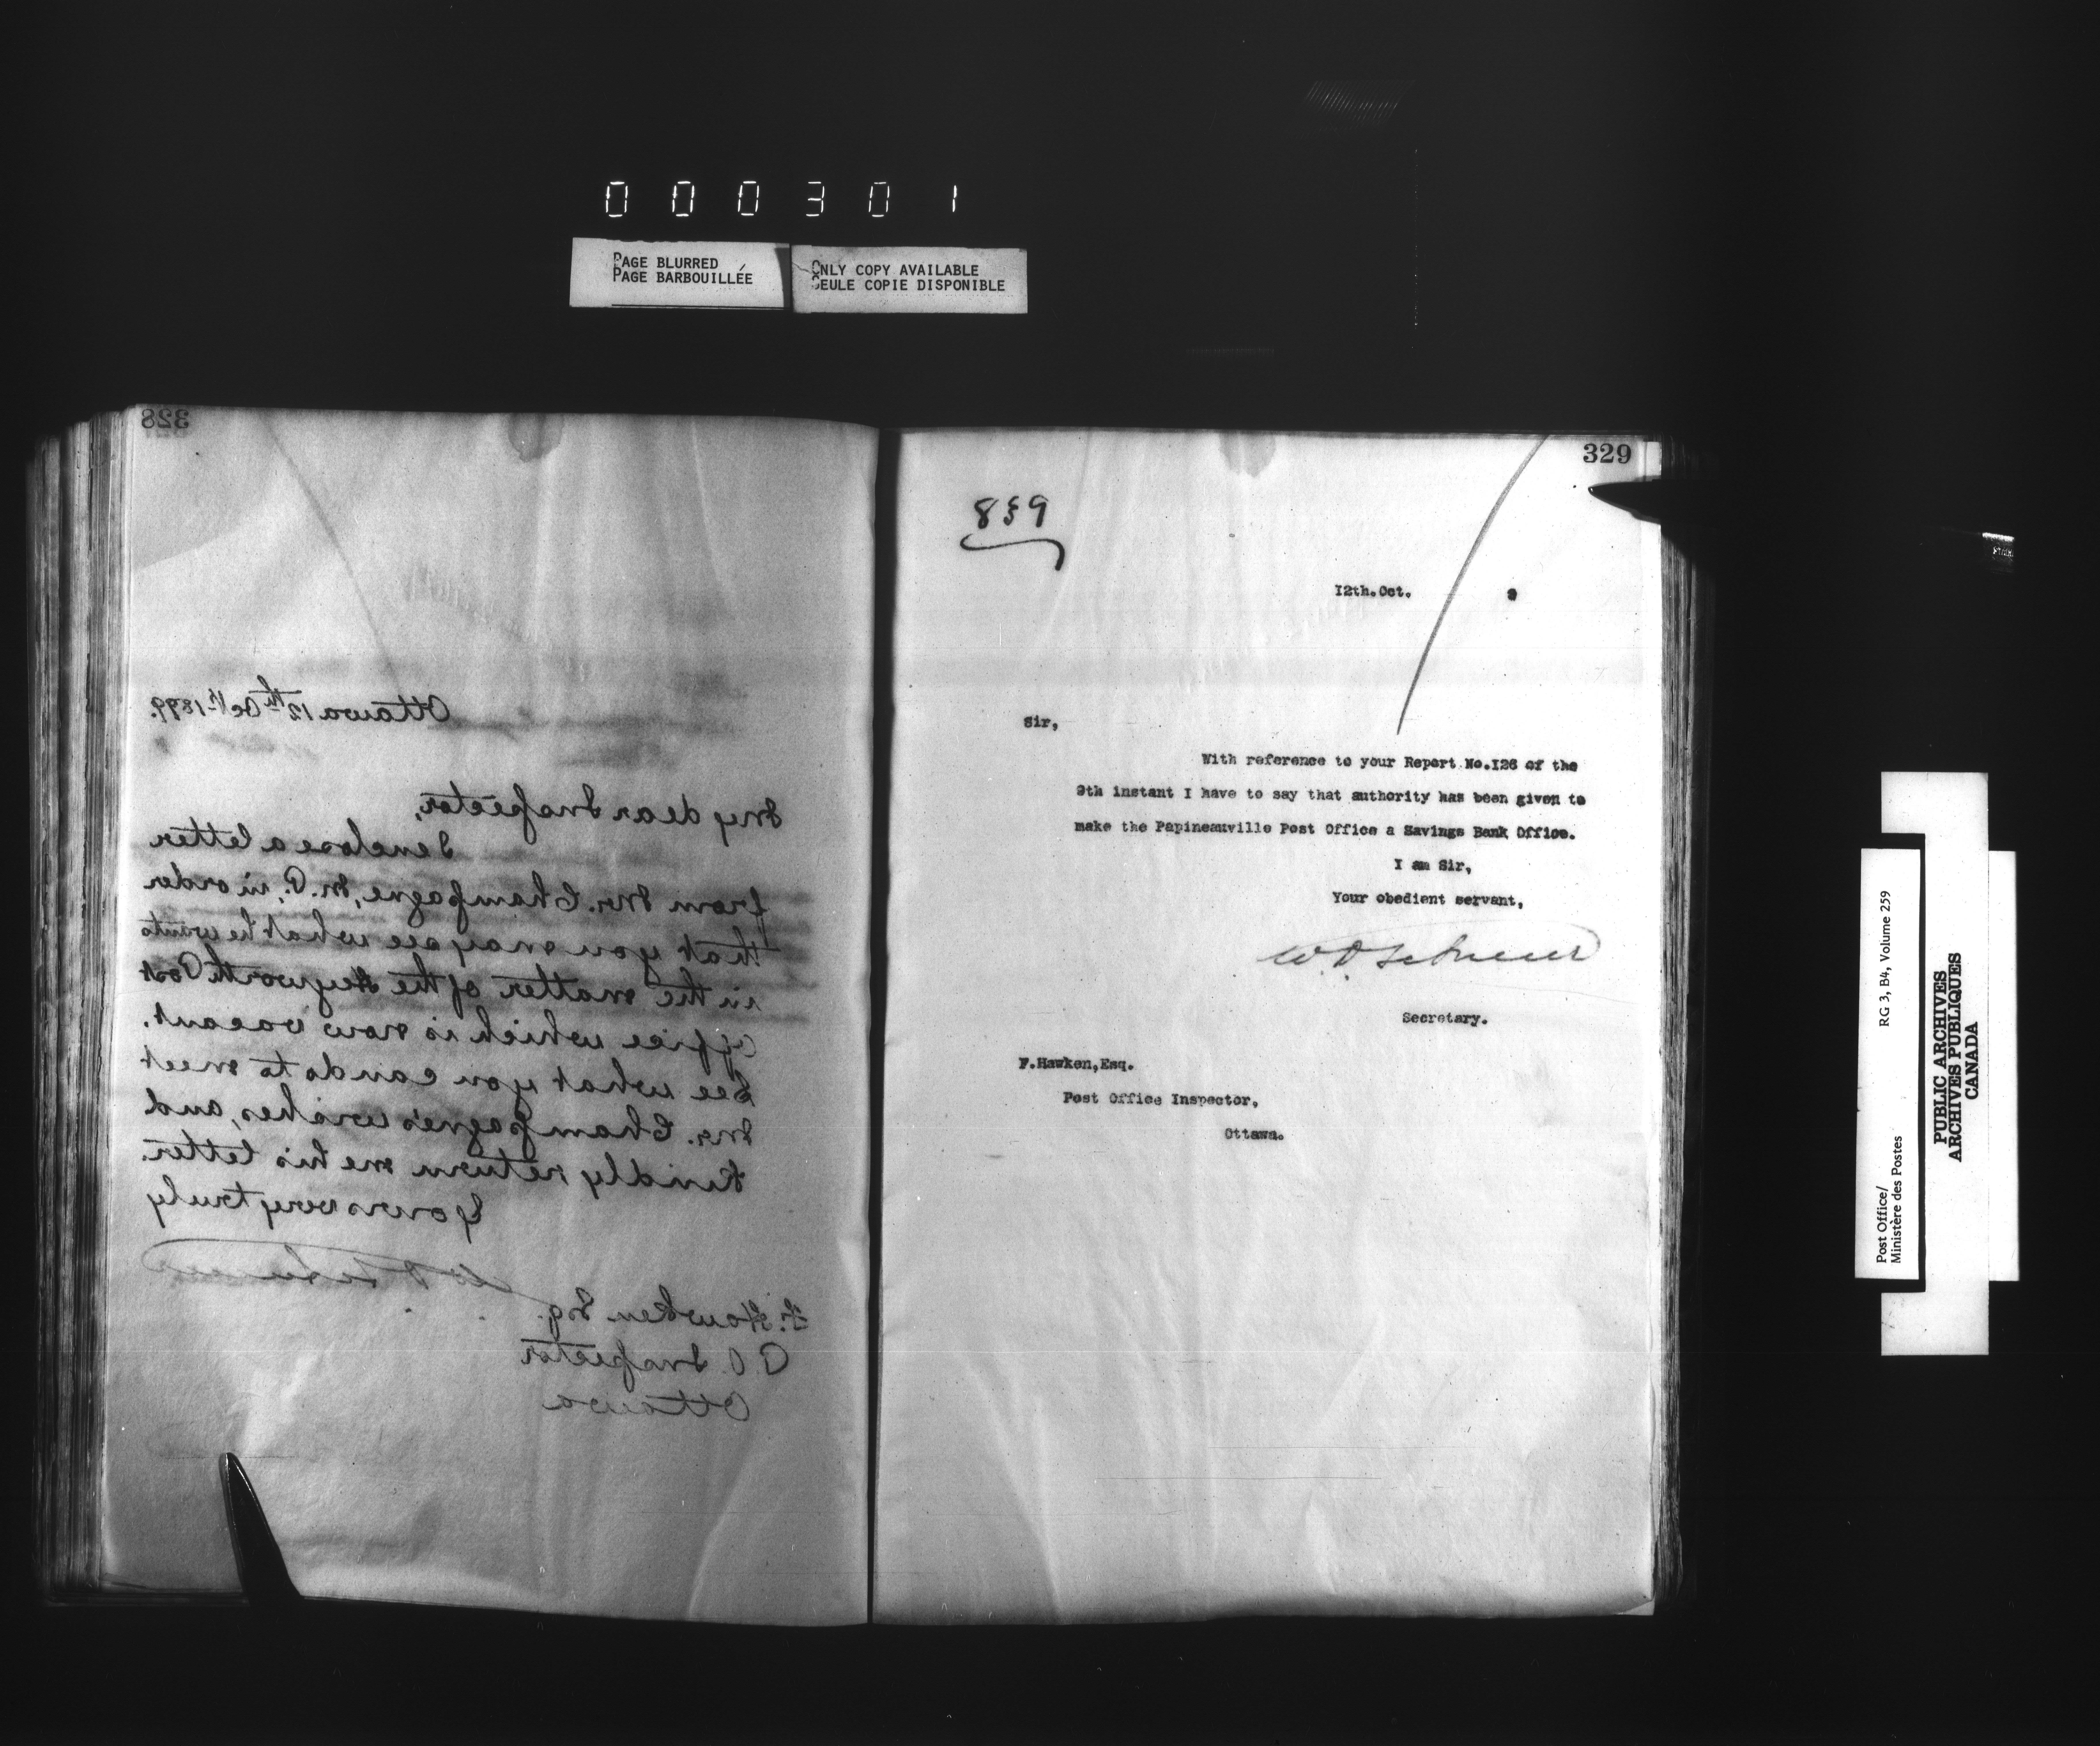 000301
PAGE BLURRED
PAGE BARBOUILLÉE
ONLY COPY AVAILABLE
SEULE COPIE DISPONIBLE
328
Ottawa 12th Oct. 1899.
My dear Inspector,
I enclose a letter
from Mr. Champagne, M.P., in order
that you may see what he wants
in the matter of the Heyworth Post
Office which is now vacant.
See what you can do to meet
Mr. Champagne's wishes, and
kindly return me his letter.
Yours very truly
F. Hawken Esq.
P.O. Inspector
Ottawa
329
8&9
I2th.Oct. 9
Sir,
With reference to your Report No.I26 of the
9th instant I have to say that authority has been given to
make the Papineauville Post Office a Savings Bank Office.
I am Sir,
Your obedient servant,
Secretary.
F.Hawken,Esq.
Post Office Inspector,
Ottawa.
Post Office/ RG 3, B4, Volume 259
Ministère des Postes
PUBLIC ARCHIVES
ARCHIVES PUBLIQUES
CANADA